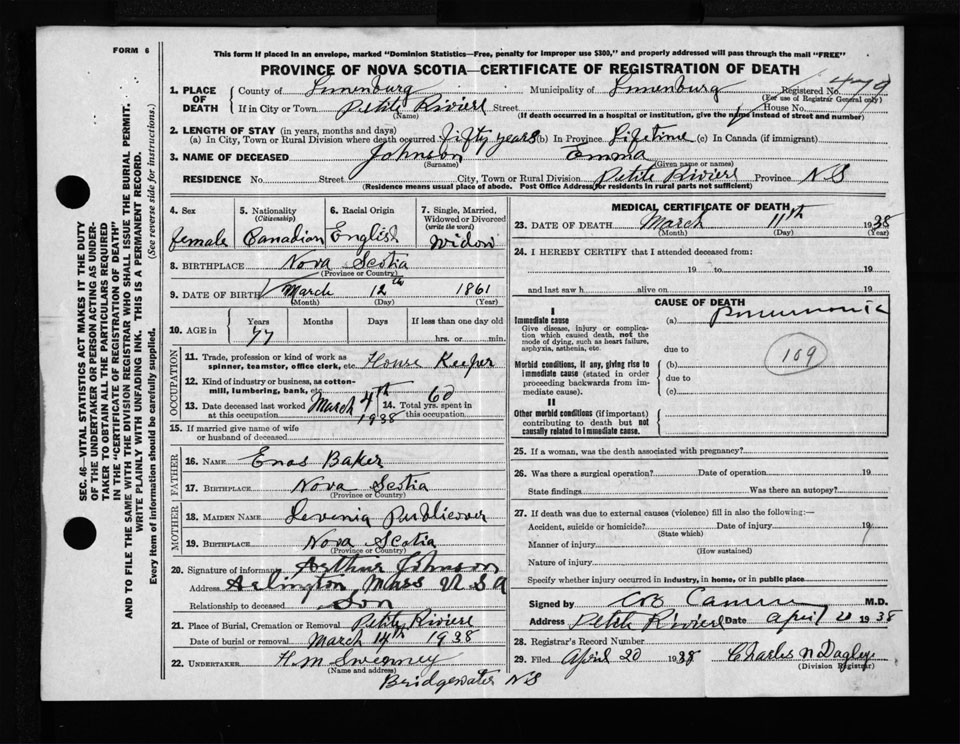 FORM 6
This form if placed in an envelope, marked "Dominion Statistics—Free, penalty for improper use $300," and properly addressed will pass through the mail "FREE"
PROVINCE OF NOVA SCOTIA—CERTIFICATE OF REGISTRATION OF DEATH
1. PLACE OF DEATH County of Lunenburg Municipality of Lunenburg Registered No. 479
(For use of Registrar General only)
If in City or Town Petite Riviere Street House No.
(Name) (If death occurred in a hospital or institution, give the name instead of street and number)
2. LENGTH OF STAY (in years, months and days)
(a) In City, Town or Rural Division where death occurred fifty years (b) In Province Lifetime (c) In Canada (if immigrant)
3. NAME OF DECEASED Johnson Emma
(Surname) (Given name or names)
RESIDENCE No. Street City, Town or Rural Division Petite Riviere Province N S
(Residence means usual place of abode. Post Office Address for residents in rural parts not sufficient)
4. Sex female
5. Nationality (Citizenship) Canadian
6. Racial Origin English
7. Single, Married, Widowed or Divorced (write the word) Widow
8. BIRTHPLACE Nova Scotia
(Province or Country)
9. DATE OF BIRTH March 12th 1861
(Month) (Day) (Year)
10. AGE in Years Months Days If less than one day
77 hrs. or min.
OCCUPATION
11. Trade, profession or kind of work as spinner, teamster, office clerk, etc. House Keeper
12. Kind of industry or business, as cotton-mill, lumbering, bank, etc.
13. Date deceased last worked at this occupation March 4th 1938
14. Total yrs. spent in this occupation 60
15. If married give name of wife or husband of deceased
FATHER
16. NAME Enos Baker
17. BIRTHPLACE Nova Scotia
(Province or Country)
MOTHER
18. MAIDEN NAME Levenia Publicover
19. BIRTHPLACE Nova Scotia
(Province or Country)
20. Signature of informant Arthur Johnson
Address Arlington Mass U S A
Relationship to deceased Son
21. Place of Burial, Cremation or Removal Petite Riviere
Date of burial or removal March 14th 1938
22. UNDERTAKER H.M Sweeney
(Name and address)
Bridgewater NS
MEDICAL CERTIFICATE OF DEATH
23. DATE OF DEATH March 11th 1938
(Month) (Day) (Year)
24. I HEREBY CERTIFY that I attended deceased from:
19 to 19
and last saw h alive on 19
CAUSE OF DEATH
I
Immediate cause (a) Pneumonia
Give disease, injury or complication which caused death, not the mode of dying, such as heart failure, asphyxia, asthenia, etc.
due to
109
Morbid conditions, if any, giving rise to immediate cause (stated in order proceeding backwards from immediate cause).
(b)
due to
(c)
II
Other morbid conditions (if important) contributing to death but not causally related to immediate cause.
25. If a woman, was the death associated with pregnancy?
26. Was there a surgical operation? Date of operation 19
State findings Was there an autopsy?
27. If death was due to external causes (violence) fill in also the following:—
Accident, suicide or homicide? Date of injury 19
(State which)
Manner of injury
(How sustained)
Nature of injury
Specify whether injury occurred in industry, in home, or in public place
Signed by M.D.
Address Petite Riviere Date April 20 1938
28. Registrar's Record Number
29. Filed April 20 1938 Charles N Dagley
(Division Registrar)
SEC. 46—VITAL STATISTICS ACT MAKES IT THE DUTY
OF THE UNDERTAKER OR PERSON ACTING AS UNDER-
TAKER TO OBTAIN ALL THE PARTICULARS REQUIRED
IN THE "CERTIFICATE OF REGISTRATION OF DEATH"
AND TO FILE THE SAME WITH THE DIVISION REGISTRAR WHO SHALL ISSUE THE BURIAL PERMIT.
WRITE PLAINLY WITH UNFADING INK. THIS IS A PERMANENT RECORD.
Every item of information should be carefully supplied. (See reverse side for instructions.)